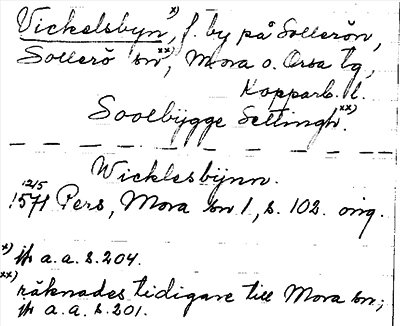 Vickelsbyn x), f. by på Sollerön,
Sollerö sn xx), Mora o. Orsa tg,
Kopparb. l.
Soolbÿgge Settingh xx).
Wicklesbÿnn.
12/5
1571 Pers, Mora sn 1, s. 102. orig.
x) jfr a.a. s. 204.
xx) räknades tidigare till Mora sn;
jfr a.a. s. 201.